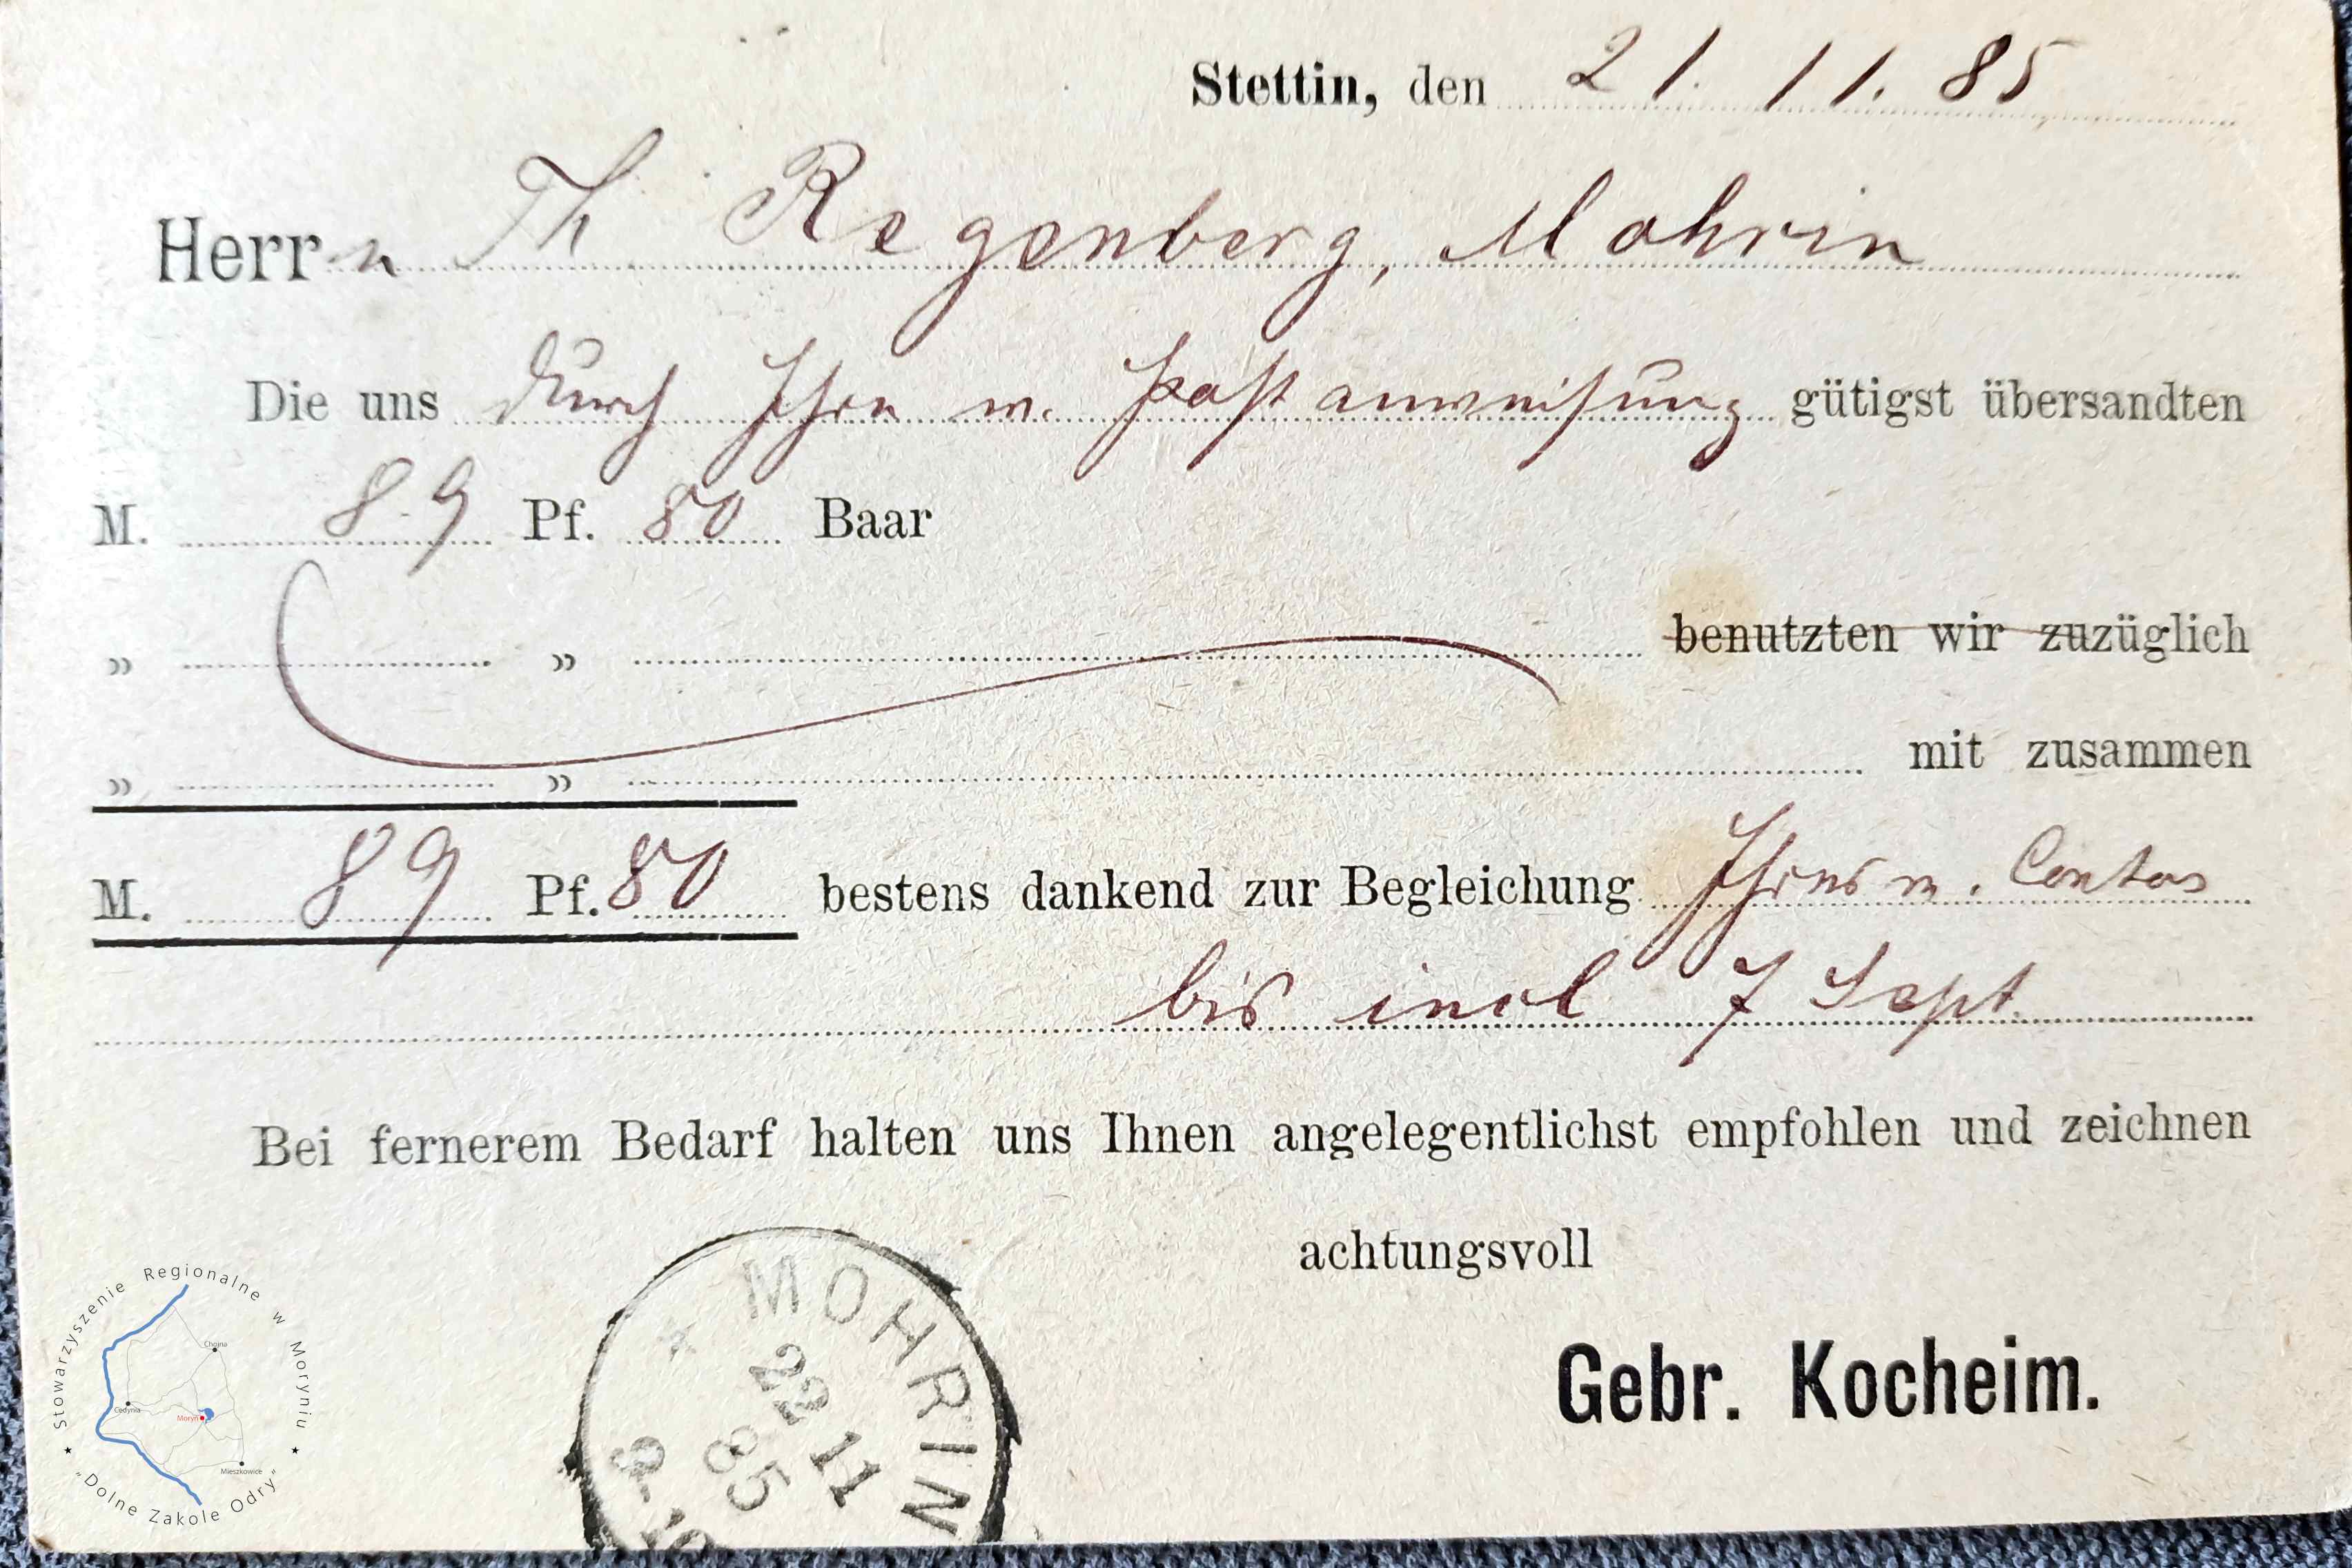 Stettin, den 21. 11. 85
Herrn Th. Regenberg, Mohrin
Die uns durch Ihre w. Postanweisung gütigst übersandten
M. 89 Pf. 80 Baar
" " benutzten wir zuzüglich
" " mit zusammen
M. 89 Pf. 80 bestens dankend zur Begleichung Ihres w. Contos
bis incl 7 Sept.
Bei fernerem Bedarf halten uns Ihnen angelegentlichst empfohlen und zeichnen
achtungsvoll
Gebr. Kocheim.
MOHRIN
22 11
85
9-10
Stowarzyszenie Regionalne w Moryniu
Chojna
Cedynia
Moryń
Mieszkowice
"Dolne Zakole Odry"